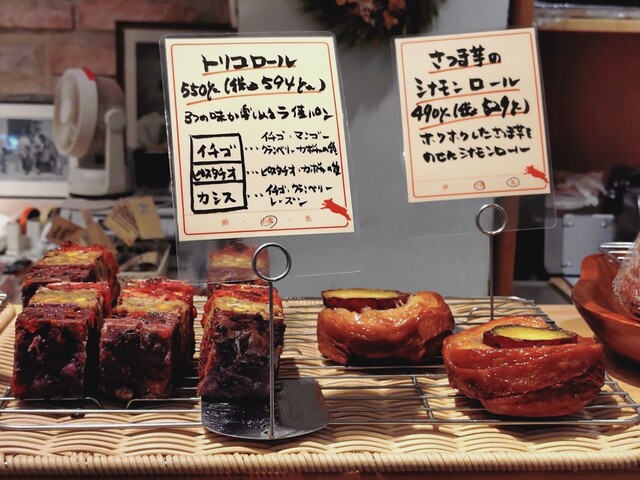 トリコロール
550yen(税込594yen)
3つの味が楽しめるライ麦パン
イチゴ
ピスタチオ
カシス
…イチゴ・マンゴー
クランベリー・カボチャの種
…ピスタチオ・カボチャの種
…イチゴ・クランベリー
レーズン
卵・小麦・乳
さつま芋の
シナモンロール
490yen(税込529yen)
ホクホクしたさつま芋を
のせたシナモンロール
卵 小麦 乳